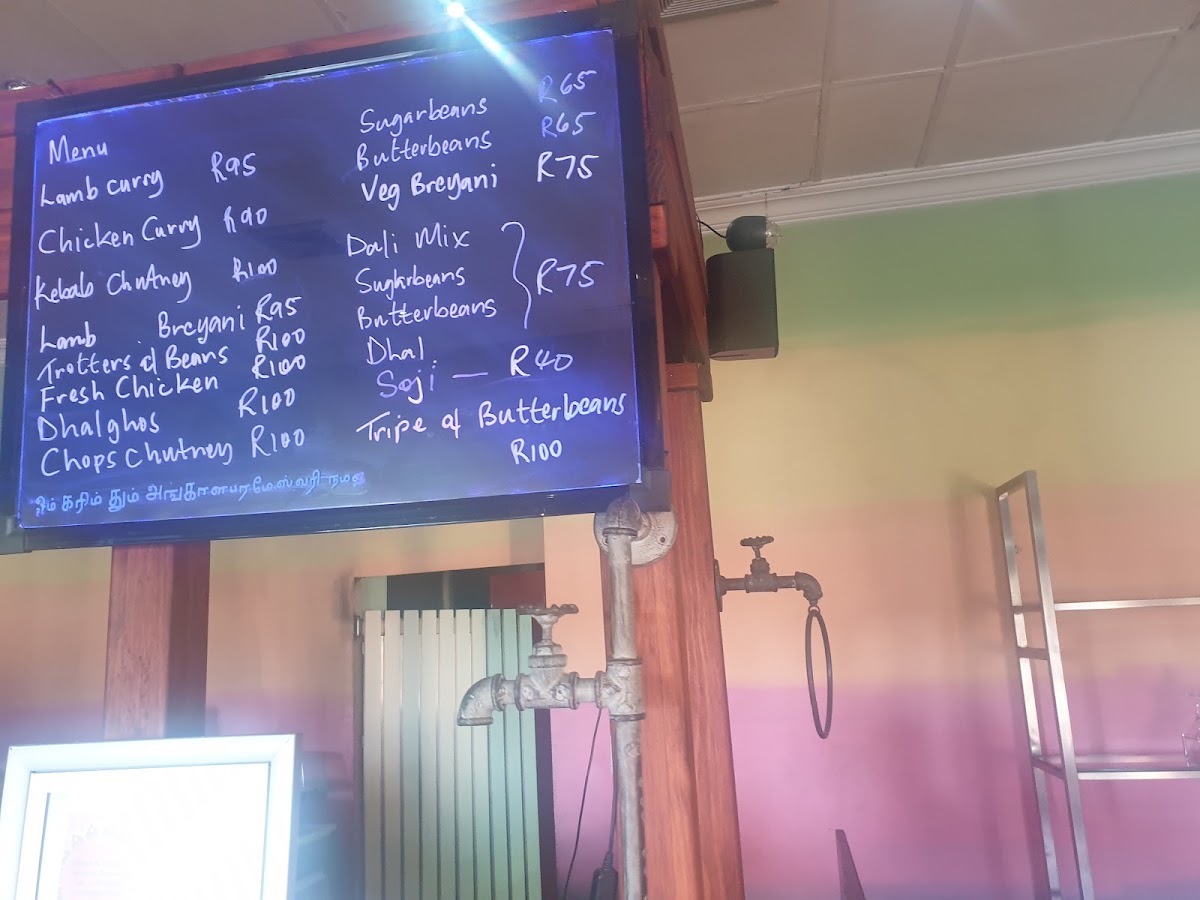 Menu
Lamb Curry R95
Chicken Curry R90
Kebab Chutney R100
Lamb Breyani R95
Trotters & Beans R100
Fresh Chicken R100
Dhalghos R100
Chops Chutney R100
Sugarbeans R65
Butterbeans R65
Veg Breyani R75
Dali Mix
Sugarbeans
Butterbeans
R75
Dhal
Soji — R40
Tripe & Butterbeans
R100
ஓம் கரிம் தும் அங்காளபரமேஸ்வரி நமஹ